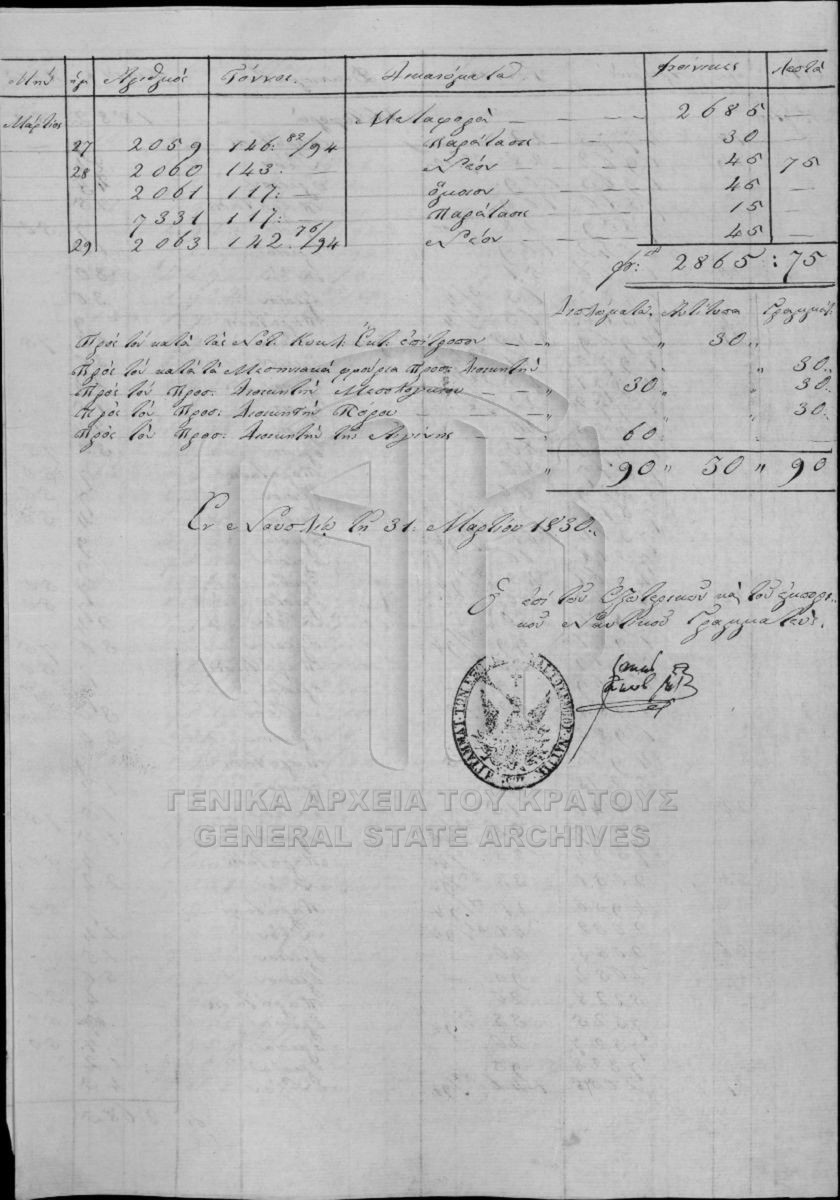 Μὴν ἡμ Ἀριθμὸς Τόννοι. Δικαιώματα Φοίνικες Λεπτὰ
Μεταφορὰ — — — 2685 —
Μάρτιος 27 2059 146: 82/94 Παράτασις — — — 30 —
28 2060 143: — Νέον — — — 45 75
2061 117: — ὅμοιον — — — 45 —
7331 117: — Παράτασις — — — 15 —
29 2063 142. 76/94 Νέον — — — 45 —
φρ: 2865 : 75
Διπλώματα. Ἀντίτυπα Γραμμάτ.
Πρὸς τὸν κατὰ τὰς Νοτ. Κυκλ. Ἐκτ. ἐπίτροπον — — „ „ 30 „
Πρὸς τὸν κατὰ τὰ Μεσηνιακὰ φρούρια Προσ. Διοικητὴν „ „ 30..
Πρὸς τὸν Προσ. Διοικητὴν Μεσολογγίου — — „ 30 „ „ 30..
Πρὸς τὸν Προσ. Διοικητὴν Πόρου — — — „ „ „ 30..
Πρὸς τὸν Προσ. Διοικητὴν τῆς Αἰγίνης — — „ 60 „ „ —
„ 90 „ 30 „ 90
Ἐν Ναυπλίῳ τῇ 31. Μαρτίου 1830..
Ὁ ἐπὶ τῶν Ἐξωτερικῶν καὶ τοῦ ἐμπορι-
κοῦ Ναυτικοῦ Γραμματεύς.
ΓΕΝΙΚΑ ΑΡΧΕΙΑ ΤΟΥ ΚΡΑΤΟΥΣ
GENERAL STATE ARCHIVES